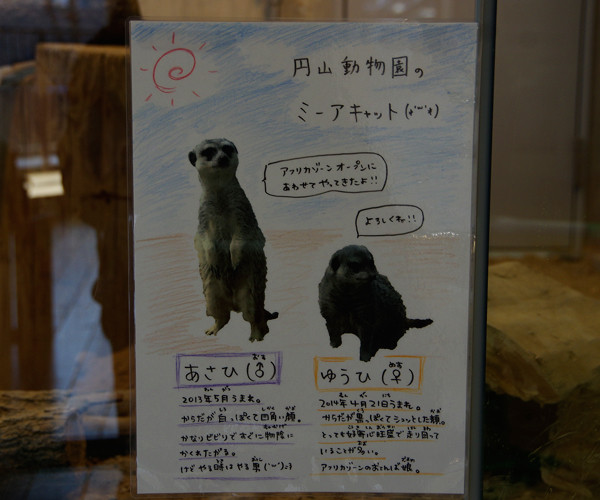 円山動物園の
ミーアキャット(•'ω'•)
アフリカゾーンオープンに
あわせてやってきたよ!!
よろしくね!!
あさひ(♂)
2013年5月うまれ。
からだが白っぽくて四角い顔。
かなりビビりですぐに物陰に
かくれたがる。
けどやる時はやる男('ω')
ゆうひ(♀)
2014年4月21日うまれ。
からだが黒っぽくてシュッとした顔。
とっても好奇心旺盛で走り回って
いることが多い。
アフリカゾーンのおてんば娘。